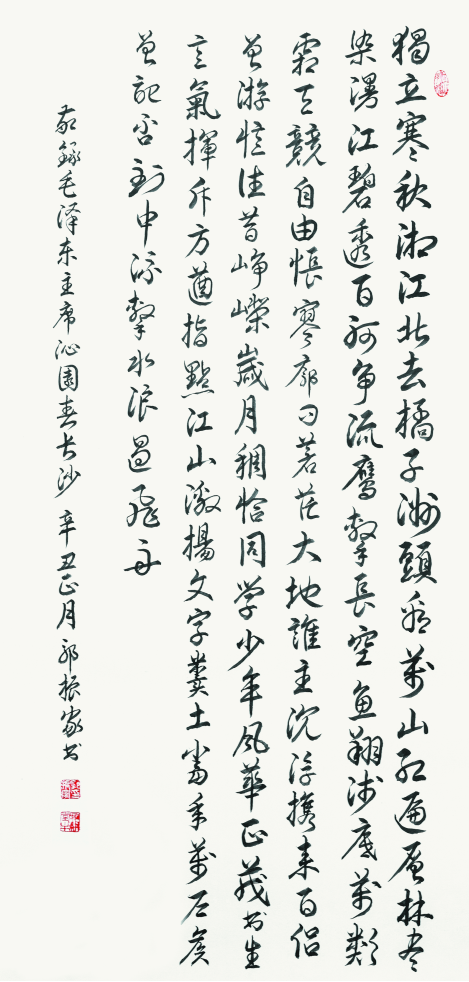 獨立寒秋湘江北去橘子洲頭看萬山红遍層林尽
染漫江碧透百舸争流鹰擊長空鱼翔浅底萬類
霜天競自由悵寥廓问苍茫大地誰主沉浮携来百侣
曾游忆往昔峥嵘歲月稠恰同学少年風華正茂书生
意氣揮斥方遒指點江山激揚文字糞土當年萬户侯
曾記否到中流擊水浪遏飛舟
敬録毛泽东主席沁園春长沙 辛丑正月郭振家书